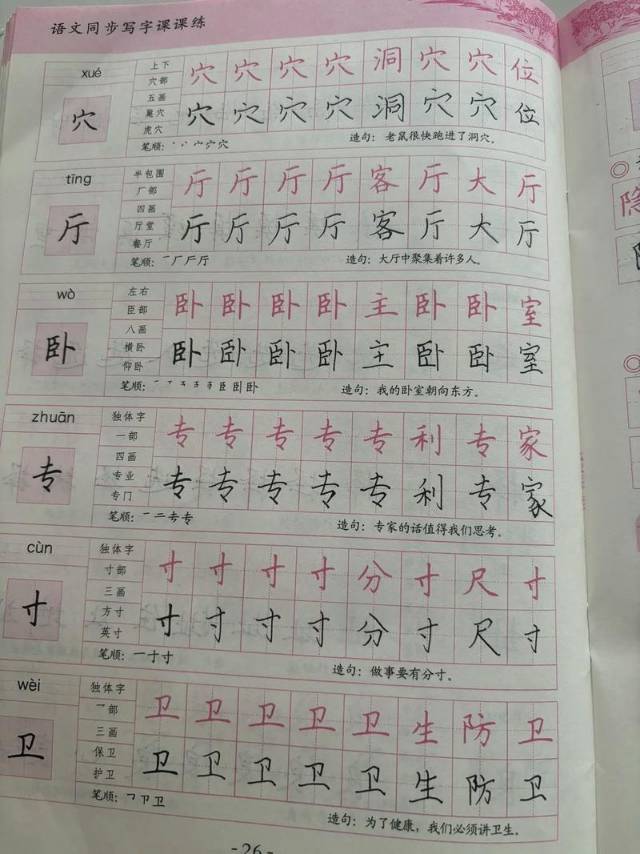 语文同步写字课课练
xué
穴
上下
穴部
五画
巢穴
虎穴
穴 穴 穴 穴 洞 穴 穴 位
穴 穴 穴 穴 洞 穴 穴 位
笔顺：丶丷宀穴穴
造句：老鼠很快跑进了洞穴。
tīng
厅
半包围
厂部
四画
厅堂
餐厅
厅 厅 厅 厅 客 厅 大 厅
厅 厅 厅 厅 客 厅 大 厅
笔顺：一厂厂厅
造句：大厅中聚集着许多人。
wò
卧
左右
臣部
八画
横卧
仰卧
卧 卧 卧 卧 主 卧 卧 室
卧 卧 卧 卧 主 卧 卧 室
笔顺：
造句：我的卧室朝向东方。
zhuān
专
独体字
一部
四画
专业
专门
专 专 专 专 专 利 专 家
专 专 专 专 专 利 专 家
笔顺：一二专专
造句：专家的话值得我们思考。
cùn
寸
独体字
寸部
三画
方寸
英寸
寸 寸 寸 寸 分 寸 尺 寸
寸 寸 寸 寸 分 寸 尺 寸
笔顺：一寸寸
造句：做事要有分寸。
wèi
卫
独体字
乛部
三画
保卫
护卫
卫 卫 卫 卫 卫 生 防 卫
卫 卫 卫 卫 卫 生 防 卫
笔顺：乛卩卫
造句：为了健康，我们必须讲卫生。
-26-
隐